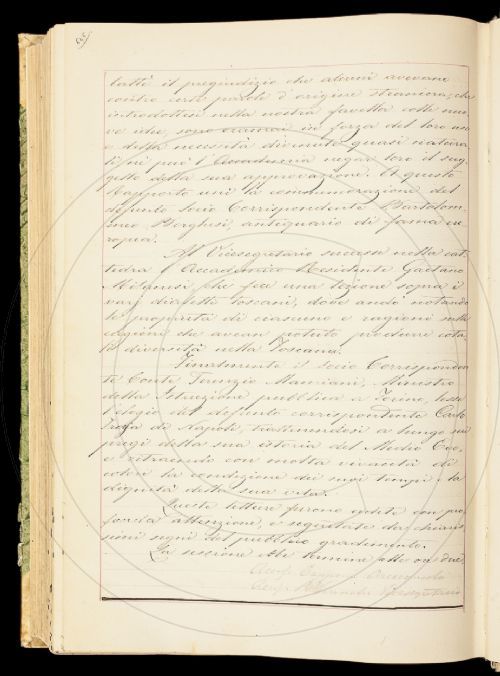 battè il pregiudizio che alcuni avevano
contro certe parole d'origine straniera, che
introdottesi nella nostra favella colle nuo
ve idee, sono oramai in forza del loro uso
e della necessità divenute quasi natura
li, nè può l'Accademia negar loro il sug
gello della sua approvazione. A questo
Rapporto unì la commemorazione del
defunto socio Corrispondente Bartolom-
meo Borghesi, antiquario di fama eu-
ropea.
Al Vicesegretario successe nella cat
tedra l'Accademico Residente Gaetano
Milanesi, che fece una lezione sopra i
varj dialetti toscani, dove andò notando
le proprietà di ciascuno e ragionò sulle
cagioni che avean potuto produrre cota
le diversità nella Toscana.
Finalmente il socio Corrisponden
te Conte Terenzio Mamiani, Ministro
della Istruzione pubblica a Torino, lesse
l'elogio del defunto corrispondente Carlo
Troya di Napoli, trattenendosi a lungo sui
pregi della sua istoria del Medio Evo,
e ritraendo con molta vivacità di
colori la condizione dei suoi tempi e la
dignità della sua vita.
Queste letture furono udite con pro
fonda attenzione, e seguitate da chiaris
simi segni del pubblico gradimento.
La sessione ebbe termine alle ore due.